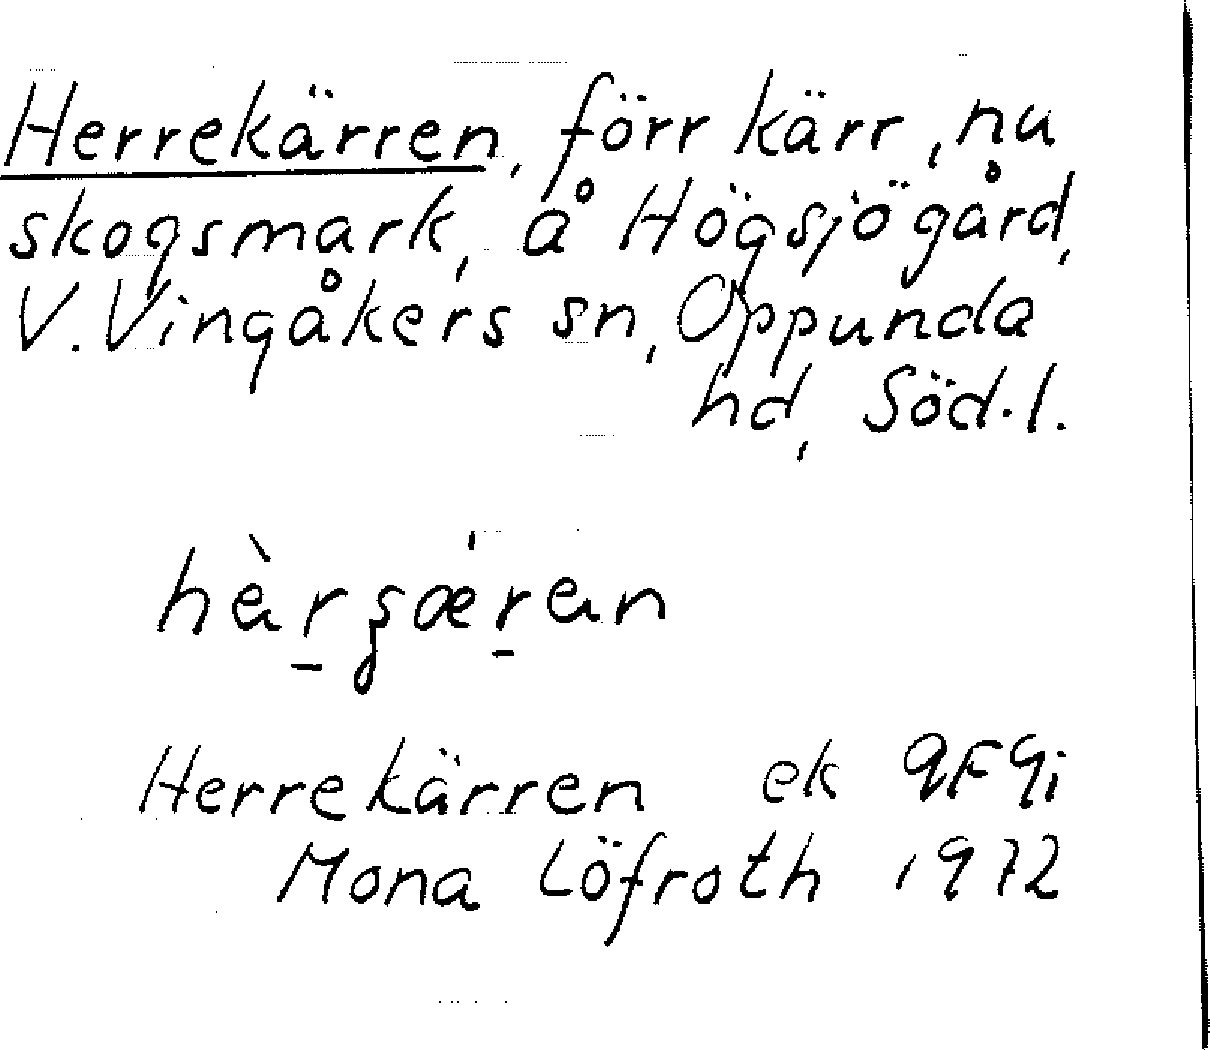 Herrekärren, förr kärr, nu
skogsmark, å Högsjögård,
V. Vingåkers sn, Oppunda
hd, Söd.l.
Herrekärren ek 9F9i
Mona Löfroth 1972